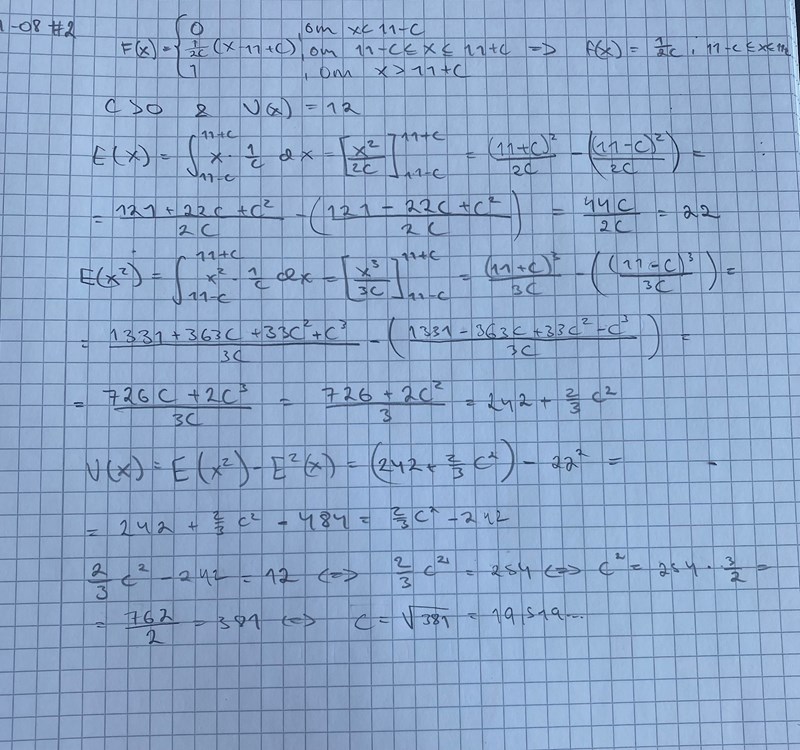 1-08 #2
F(x) = { 0 , om x < 11-c
1/2c (x-11+c) , om 11-c ≤ x ≤ 11+c => f(x) = 1/2c , 11-c ≤ x ≤
1 , om x > 11+c
c > 0 & V(x) = 12
E(x) = ∫_{11-c}^{11+c} x · 1/c dx = [x²/2c]_{11-c}^{11+c} = (11+c)²/2c - ((11-c)²/2c) =
= 121 + 22c + c²/2c - (121 - 22c + c²/2c) = 44c/2c = 22
E(x²) = ∫_{11-c}^{11+c} x² · 1/c dx = [x³/3c]_{11-c}^{11+c} = (11+c)³/3c - ((11-c)³/3c) =
= 1331 + 363c + 33c² + c³/3c - (1331 - 363c + 33c² - c³/3c) =
= 726c + 2c³/3c = 726 + 2c²/3 = 242 + 2/3 c²
V(x) = E(x²) - E²(x) = (242 + 2/3 c²) - 22² =
= 242 + 2/3 c² - 484 = 2/3 c² - 242
2/3 c² - 242 = 12 <=> 2/3 c² = 254 <=> c² = 254 · 3/2 =
= 762/2 = 381 <=> c = √381 = 19,519...